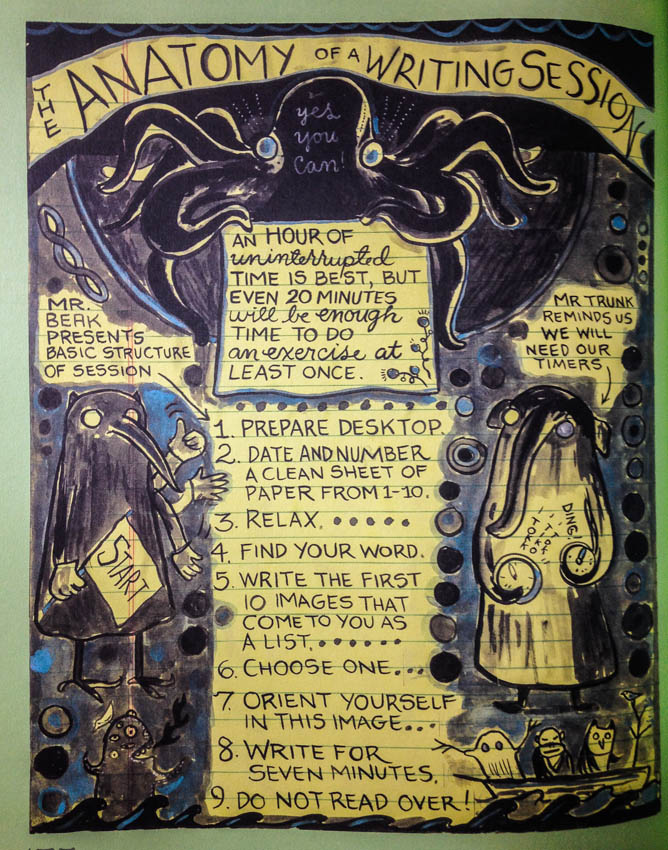 THE ANATOMY OF A WRITING SESSION
yes
you
can!
AN HOUR OF
uninterrupted
TIME IS BEST, BUT
EVEN 20 MINUTES
will be enough
TIME TO DO
an exercise at
LEAST ONCE.
MR.
BEAK
PRESENTS
BASIC STRUCTURE
OF SESSION
MR TRUNK
REMINDS US
WE WILL
NEED OUR
TIMERS
1. PREPARE DESKTOP.
2. DATE AND NUMBER
A CLEAN SHEET OF
PAPER FROM 1-10.
3. RELAX.
4. FIND YOUR WORD.
5. WRITE THE FIRST
10 IMAGES THAT
COME TO YOU AS
A LIST.
6. CHOOSE ONE...
7. ORIENT YOURSELF
IN THIS IMAGE...
8. WRITE FOR
SEVEN MINUTES.
9. DO NOT READ OVER!
START
DING!